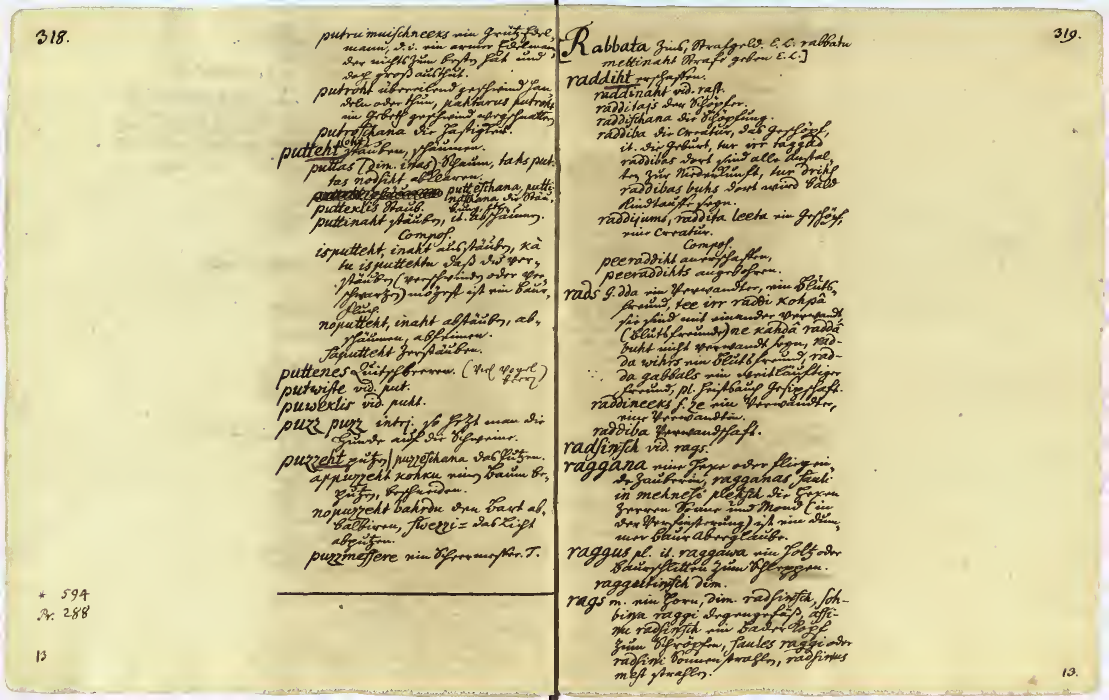 318.
putru muischneeks ein Grütz Edel-
mann, d. i. ein armer Edelman
der nichts zum besten hat und
doch groß aus thut.
putroht übereilend geschwind han
deln oder thun, pahtarus putroht
ein Gebeth geschwind wegschnattern
putroschana die Hastigkeit.
putteht stäuben, schäumen.
puttas (Dim. itas) Schaum, tahs put-
tas nosmeht abklären.
putteschana, putti-
putteklis Staub. naschana die Stäu-
puttinaht stäuben, it. abschäumen.
Compos.
isputteht, inaht ausstäuben, kà
tu isputtehtu daß du ver-
stäuben (verschwinden oder ver-
schwartzen) mögest ist ein Baur-
fluch.
noputteht, inaht abstäuben, ab-
schäumen, abfeimen.
saputteht zerstäuben.
puttenes Quitschbeeren. (Viell. Vogel
beer)
putwiste vid. put.
puweklis vid. puht.
puzz puzz intrj. so hezt man die
Hunde auf die Schweine.
puzzeht putzen, puzzeschana das Putzen.
appuzzeht kohku einen Baum be-
putzen, beschneiden.
nopuzzeht bahrdu den Bart ab-
balbiren, swezzi = das Licht
abputzen.
puzzmessere ein Scheermesser. T.
* 594
Pr. 288
13
319.
Rabbata Zins, Strafgeld. E. L. rabbatu
mettinaht Strafe geben E. L.]
raddiht erschaffen.
raddinaht vid. rast.
radditajs der Schöpfer.
raddischana die Schöpfung.
raddiba die Creatur, das Geschöpf,
it. die Geburt, tur irr taggad
raddibas dort sind alle Anstal-
ten zur Niederkunft, tur drihs
raddibas buhs dort wird bald
Kindtauffe seyn.
raddijums, raddita leeta ein Geschöpf,
eine Creatur.
Compos.
peeraddiht anerschaffen,
peeraddihts angebohren.
rads g. dda ein Verwandter, ein Bluts-
freund, tee irr raddi kohpâ
sie sind mit einander verwandt
(Blutsfreunde) ne kahdâ raddâ
buht nicht verwandt seyn, rad-
da wihrs ein Blutsfreund, rad-
da gabbals ein weitläuftiger
Freund, pl. Freundschaft.
raddineeks f. ze ein Verwandter,
eine Verwandtin.
raddiba Verwandschaft.
radsinsch vid. rags.
raggana eine Hexe oder fliegen-
de Zauberin, ragganas sauli
in mehnesi plehsch die Hexen
zerren Sonne und Mond (in
der Verfinsterung) ist ein dum-
mer Baur Aberglaube.
raggus pl. it. raggawa ein Holtz oder
Baurschlitten zum Schleppen.
raggutinsch dim.
rags m. ein Horn, dim. radsinsch, soh-
bina raggi Degengefäß, assi-
nu radsinsch ein Bader Kopf
zum Schröpfen, saules raggi oder
radsini Sonnenstrahlen, radsinus
mest strahlen.
13.